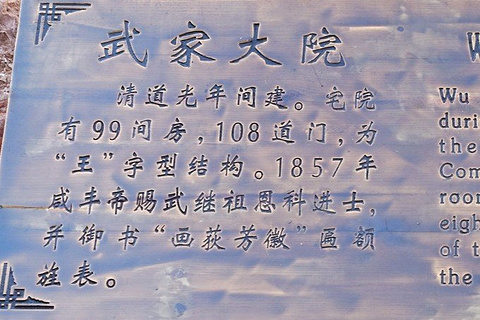 武家大院
清道光年间建。宅院
有99间房,108道门,为
“王”字型结构。1857年
咸丰帝赐武继祖恩科进士,
并御书“画荻芳徽”匾额
旌表。
W
Wu
duri
the
Com
room
eigh
of t
the